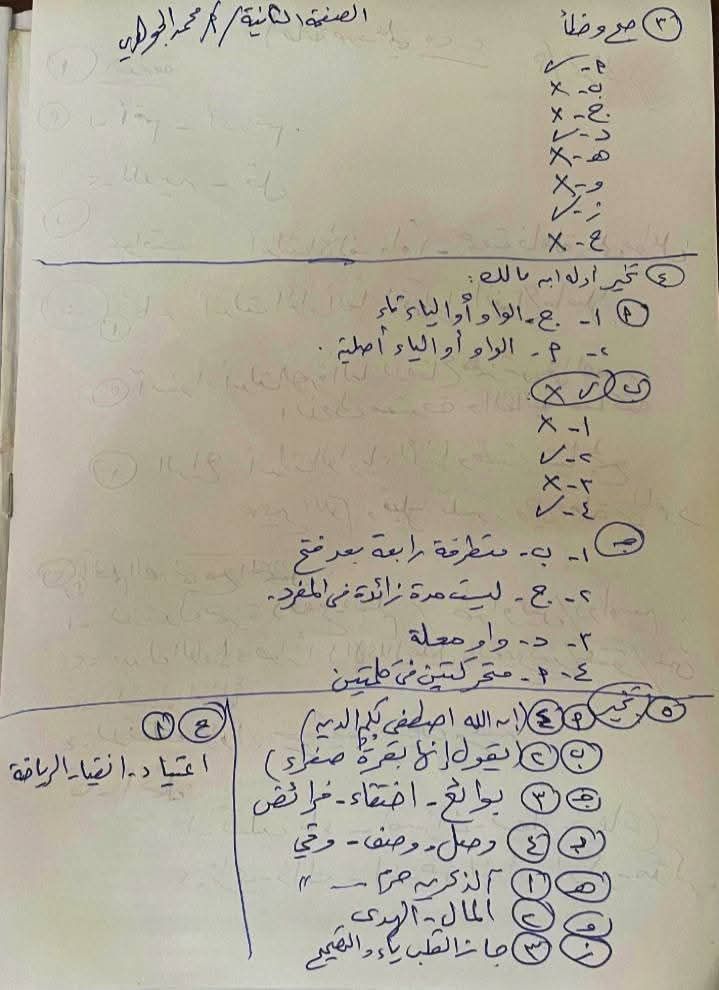 الصفحة الثانية / أ / محمد الجوهري
٣ صح وخطأ
أ- ✓
ب- ×
ج- ×
د- ✓
هـ- ×
و- ×
ز- ✓
ح- ×
٤ تخير أدلة ابن مالك:
أ ١- ج- الواو أو الياء تاء
٢- أ- الواو أو الياء أصلية .
ب ✓ ×
١- ×
٢- ✓
٣- ×
٤- ✓
جـ ١- ب- متطرفة رابعة بعد فتح
٢- ج- ليست مدة زائدة في المفرد.
٣- د- واو معلة
٤- أ- متحركتين في كلمتين
٥ تخير أ ٤ (إن الله اصطفى لكم الدين)
ب ٢ (يقول إنها بقرة صفراء)
جـ ٣ بوائع - اختفاء - فرائض
د ٤ وصل - وصف - وقي
هـ ١ آلذكرين حرم - "
و ٢ المال - الهدى
ز ٣ جاز القلب ياء والتصحيح
ح ٢
اعتياد - انقياد - الرياضة